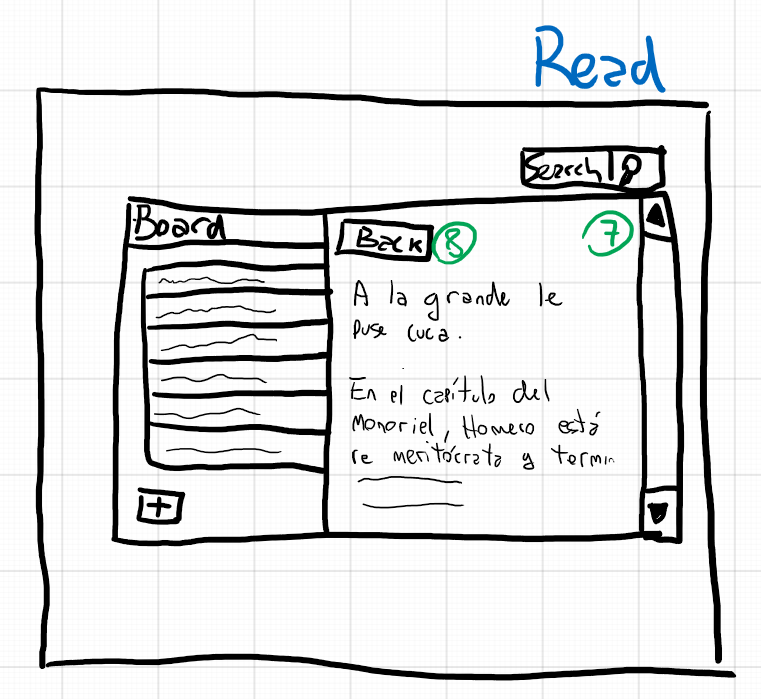 Read
Search
Board
Back 8 7
A la grande le
puse cuca.
En el capítulo del
Monoriel, Homero está
re meritócrata y termin